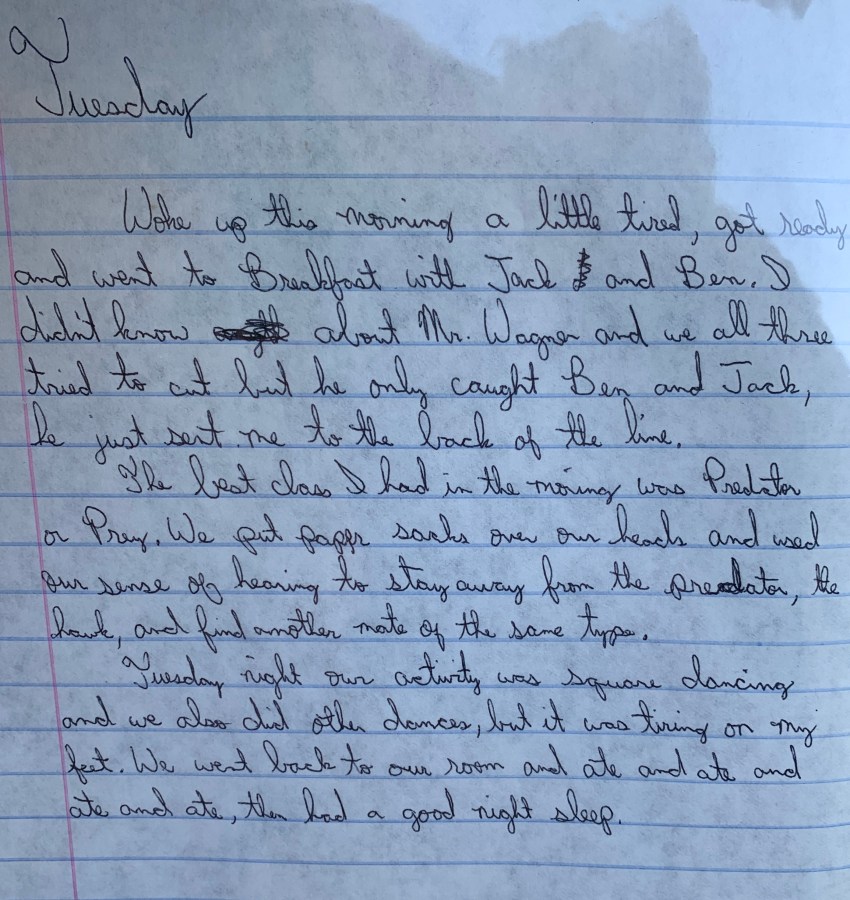 Tuesday
Woke up this morning a little tired, got ready
and went to Breakfast with Jack and Ben. I
didn't know about Mr. Wagner and we all three
tried to cut but he only caught Ben and Jack,
he just sent me to the back of the line.
The best class I had in the moring was Predator
or Prey. We put paper sacks over our heads and used
our sense of hearing to stay away from the predator, the
hawk, and find another mate of the same type.
Tuesday night our activity was square dancing
and we also did other dances, but it was tiring on my
feet. We went back to our room and ate and ate and
ate and ate, then had a good night sleep.